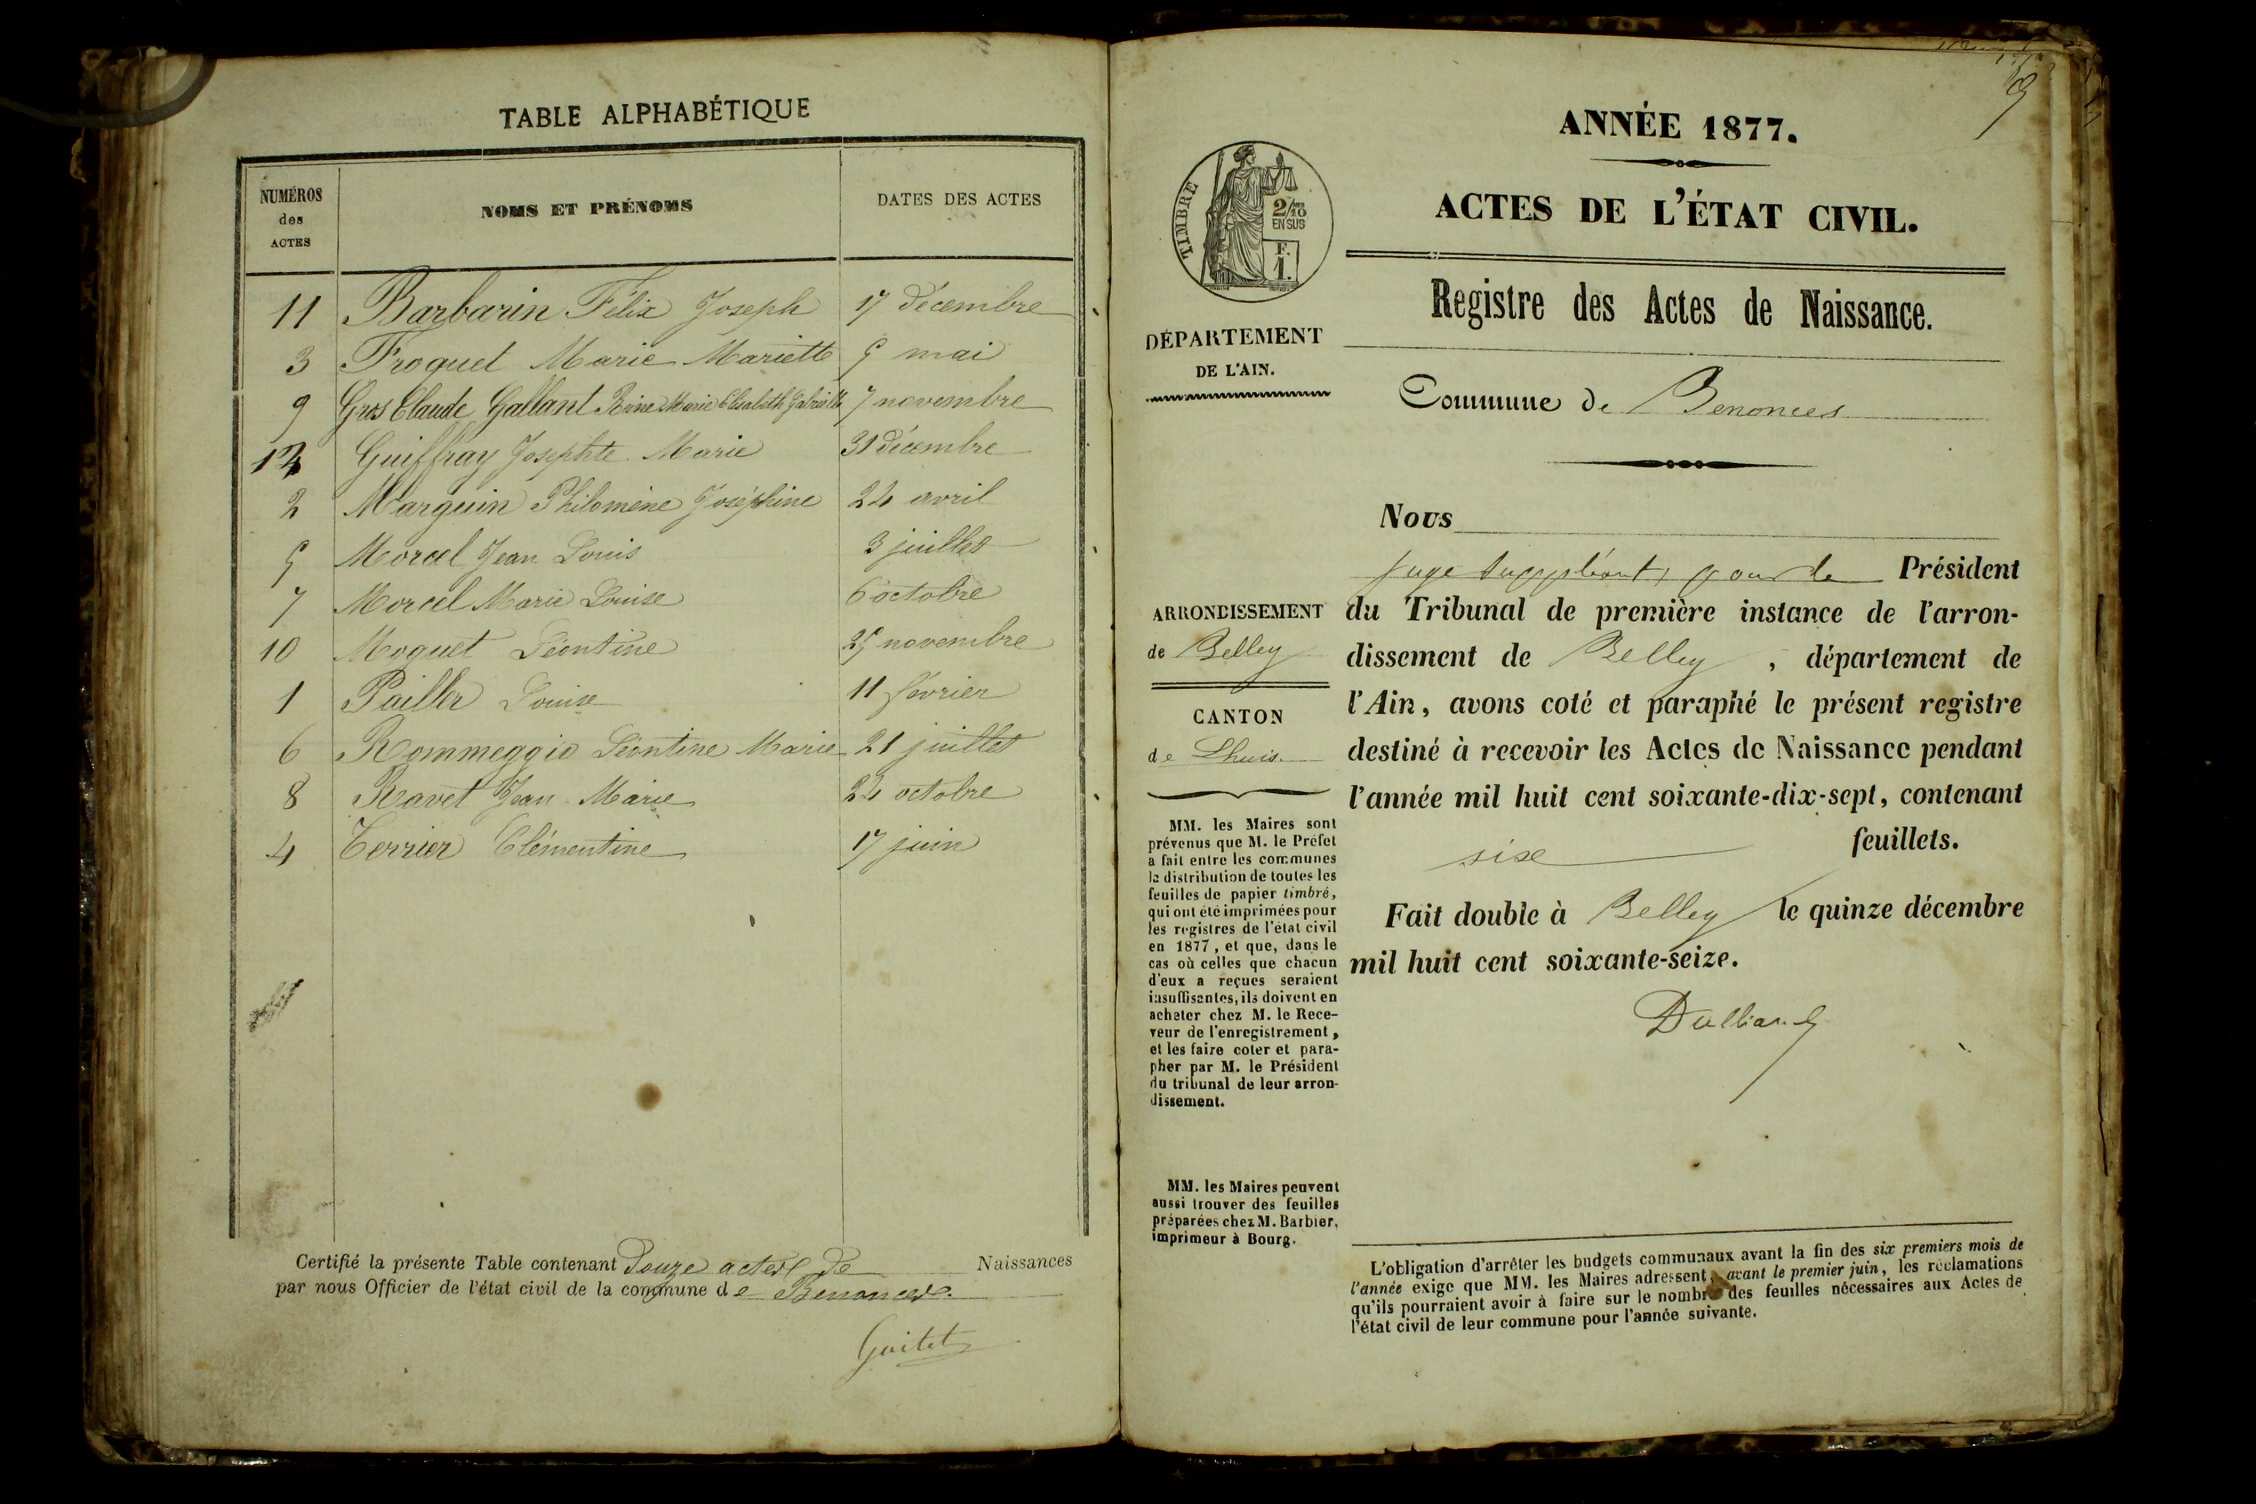 TABLE ALPHABÉTIQUE
NUMÉROS des ACTES
NOMS ET PRÉNOMS
DATES DES ACTES
11 Barbarin Félix Joseph 17 décembre
3 Froquet Marie Mariette 9 mai
9 Gros Claude Gallant Reine Marie Elisabeth Gabrielle 7 novembre
12 Guiffray Josephte Marie 31 décembre
2 Marguin Philomène Joséphine 24 avril
5 Morcel Jean Louis 3 juillet
7 Morcel Marie Louise 6 octobre
10 Moquet Léontine 25 novembre
1 Pailler Louise 11 février
6 Rommeggio Léontine Marie 21 juillet
8 Ravet Jean Marie 24 octobre
4 Terrier Clémentine 17 juin
Certifié la présente Table contenant Douze actes de Naissances
par nous Officier de l'état civil de la commune de Benonces.
Guitet
ANNÉE 1877.
ACTES DE L'ÉTAT CIVIL.
TIMBRE
2/10
EN SUS
F.
1.
Registre des Actes de Naissance.
DÉPARTEMENT
DE L'AIN.
Commune de Benonces
Nous
juge suppléant, pour le Président
ARRONDISSEMENT
de Belley
CANTON
de Lhuis.
du Tribunal de première instance de l'arron-
dissement de Belley, département de
l'Ain, avons coté et paraphé le présent registre
destiné à recevoir les Actes de Naissance pendant
l'année mil huit cent soixante-dix-sept, contenant
six feuillets.
Fait double à Belley le quinze décembre
mil huit cent soixante-seize.
MM. les Maires sont
prévenus que M. le Préfet
a fait entre les communes
la distribution de toutes les
feuilles de papier timbré,
qui ont été imprimées pour
les registres de l'état civil
en 1877, et que, dans le
cas où celles que chacun
d'eux a reçues seraient
insuffisantes, ils doivent en
acheter chez M. le Rece-
veur de l'enregistrement,
et les faire coter et para-
pher par M. le Président
du tribunal de leur arron-
dissement.
MM. les Maires peuvent
aussi trouver des feuilles
préparées chez M. Barbier,
imprimeur à Bourg.
L'obligation d'arrêter les budgets communaux avant la fin des six premiers mois de
l'année exige que MM. les Maires adressent, avant le premier juin, les réclamations
qu'ils pourraient avoir à faire sur le nombre des feuilles nécessaires aux Actes de
l'état civil de leur commune pour l'année suivante.